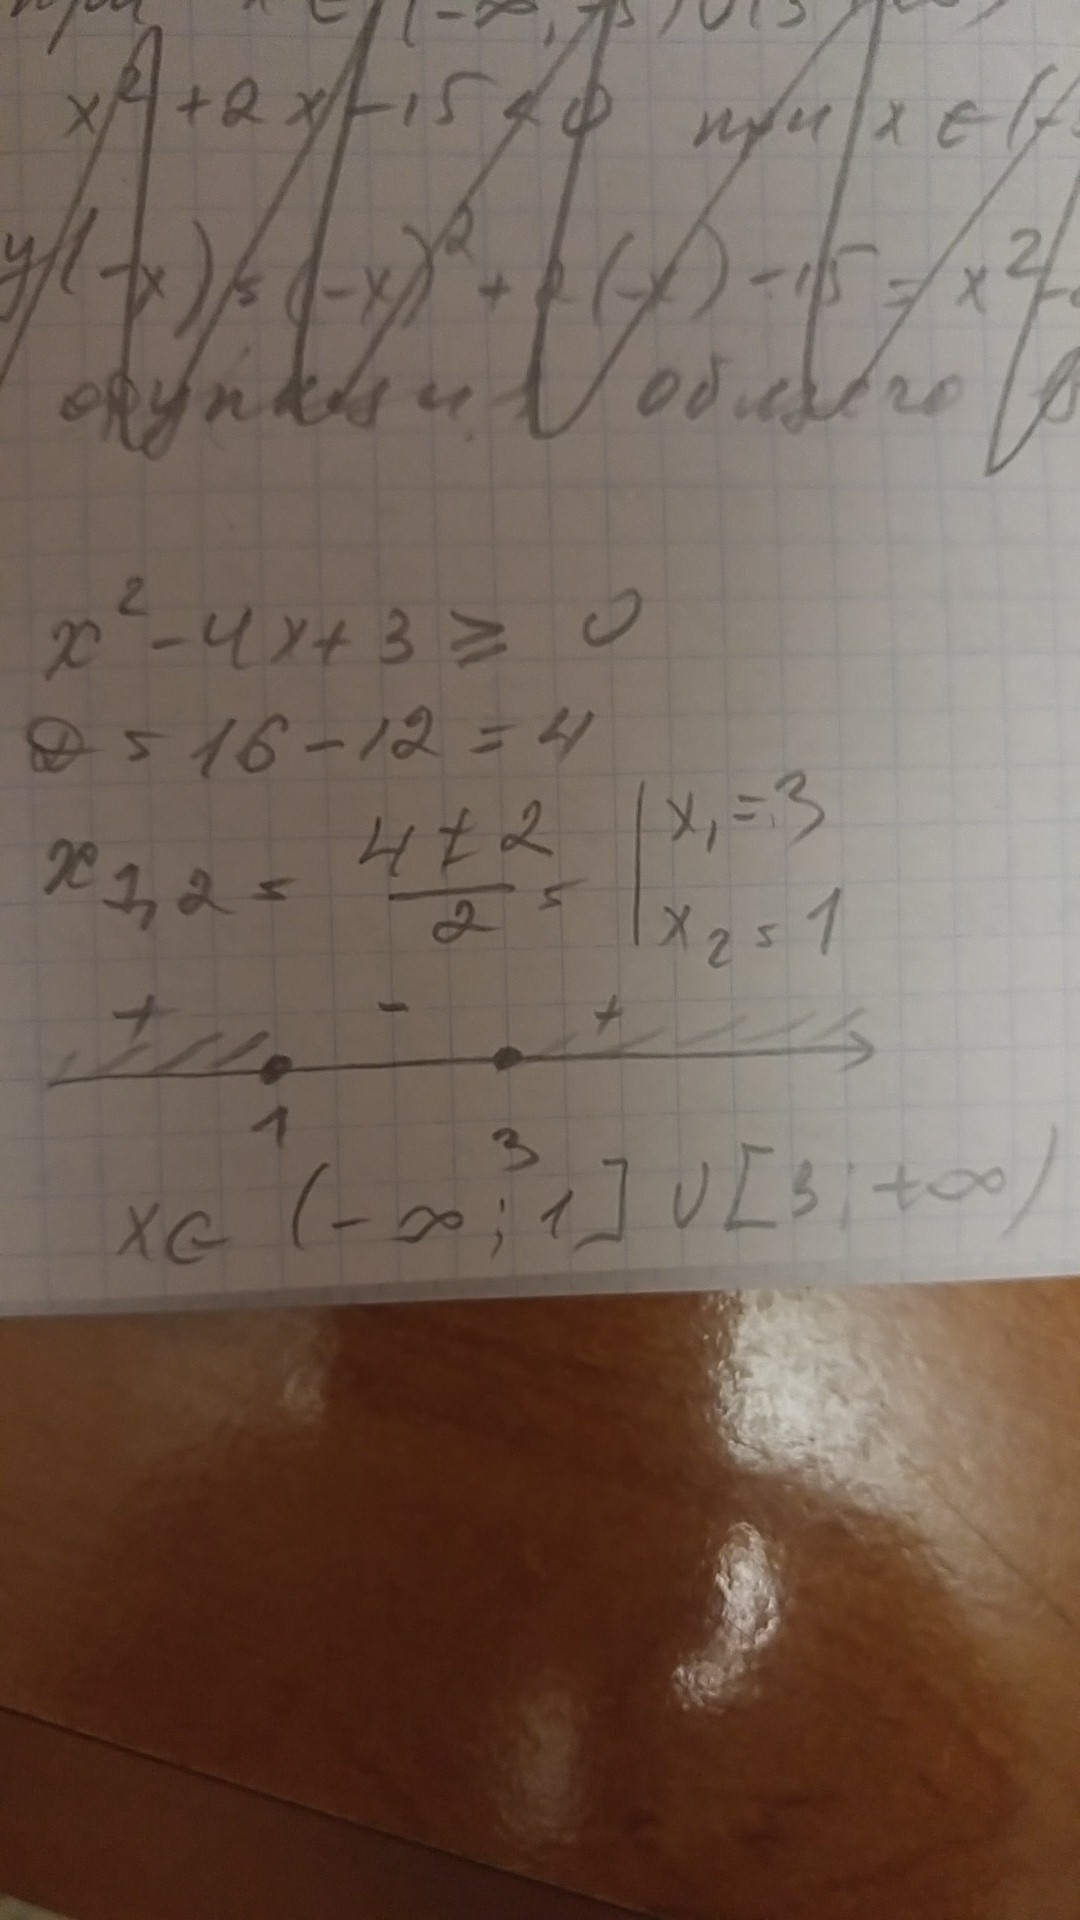 при x ∈ (-∞; -5) ∪ (3
x² + 2x - 15 < 0 при x ∈ (-
y(-x) = (-x)² + 2(-x) - 15 = x² -
функция общего в
x² - 4x + 3 ≥ 0
D = 16 - 12 = 4
x 1,2 = 4 ± 2 / 2 = | x₁ = 3
x₂ = 1
+ - +
1 3
x ∈ (-∞; 1] ∪ [3; +∞)